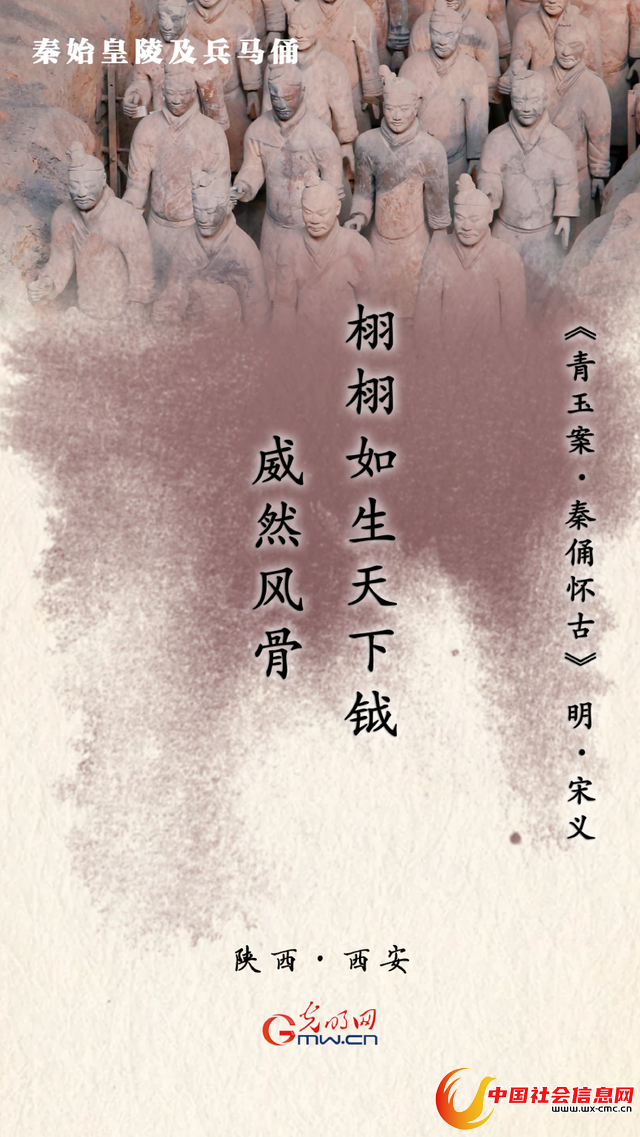 秦始皇陵及兵马俑
《青玉案·秦俑怀古》 明·宋义
栩栩如生天下钺
威然风骨
陕西·西安
光明网
GMW.CN
中国社会信息网
www.wx-cmc.cn